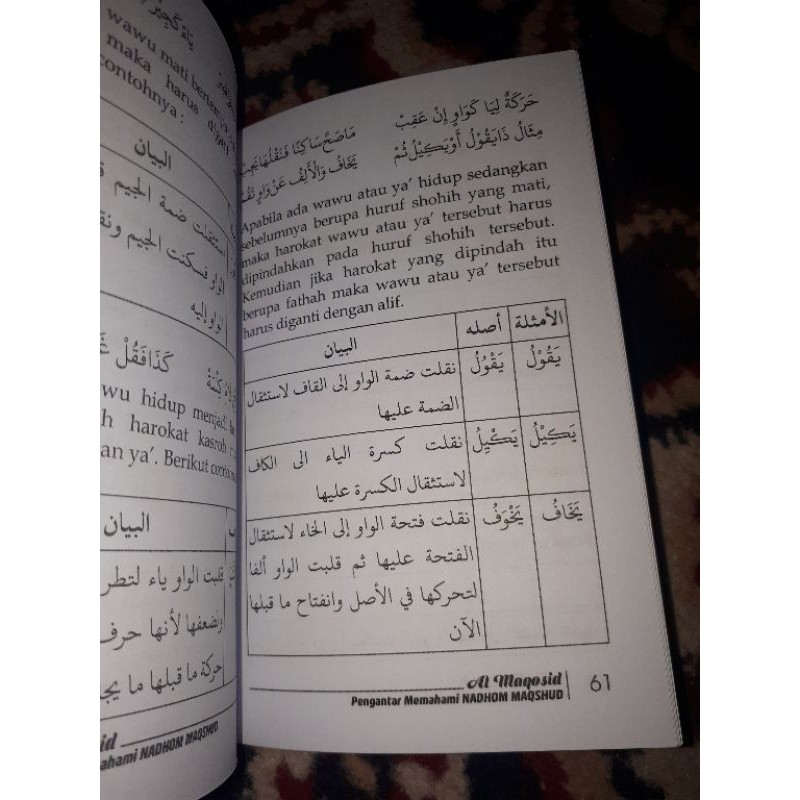 wawu mati
maka harus
contohnya :
البيان
استثقلت ضمة الجيم
الواو فسكنت الجيم
الواو إليه
كَذَا فَقُلْ
wu hidup menjadi
h harokat kasroh
an ya’. Berikut
البيان
قلبت الواو ياء
وتضعفها لأنها حرف
حركة ما قبلها ما
ahami NADHOM MAQSHUD
حَرَكَةٌ لِيَا كَوَاوٍ إِنْ عَقِبْ مَاصَحَّ سَاكِنًا فَنَقْلُهَا يَجِبْ
مِثَالُ ذَا يَقُوْلُ أَوْ يَكِيْلُ ثُمْ يَخَافُ وَالْأَلِفُ عَنْ وَاوٍ
Apabila ada wawu atau ya’ hidup sedangkan
sebelumnya berupa huruf shohih yang mati,
maka harokat wawu atau ya’ tersebut harus
dipindahkan pada huruf shohih tersebut.
Kemudian jika harokat yang dipindah itu
berupa fathah maka wawu atau ya’ tersebut
harus diganti dengan alif.
الأمثلة أصله البيان
يَقُوْلُ يَقْوُلُ نقلت ضمة الواو إلى القاف لاستثقال
الضمة عليها
يَكِيْلُ يَكْيِلُ نقلت كسرة الياء الى الكاف
لاستثقال الكسرة عليها
يَخَافُ يَخْوَفُ نقلت فتحة الواو إلى الخاء لاستثقال
الفتحة عليها ثم قلبت الواو ألفا
لتحركها في الأصل وانفتاح ما قبلها
الآن
Al Maqosid
Pengantar Memahami NADHOM MAQSHUD
61